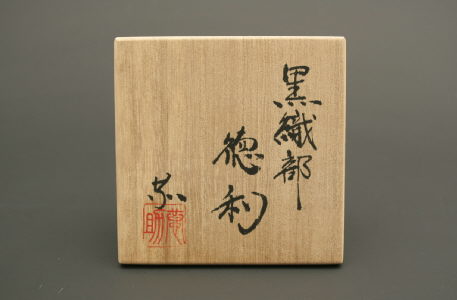 黒織部
徳利